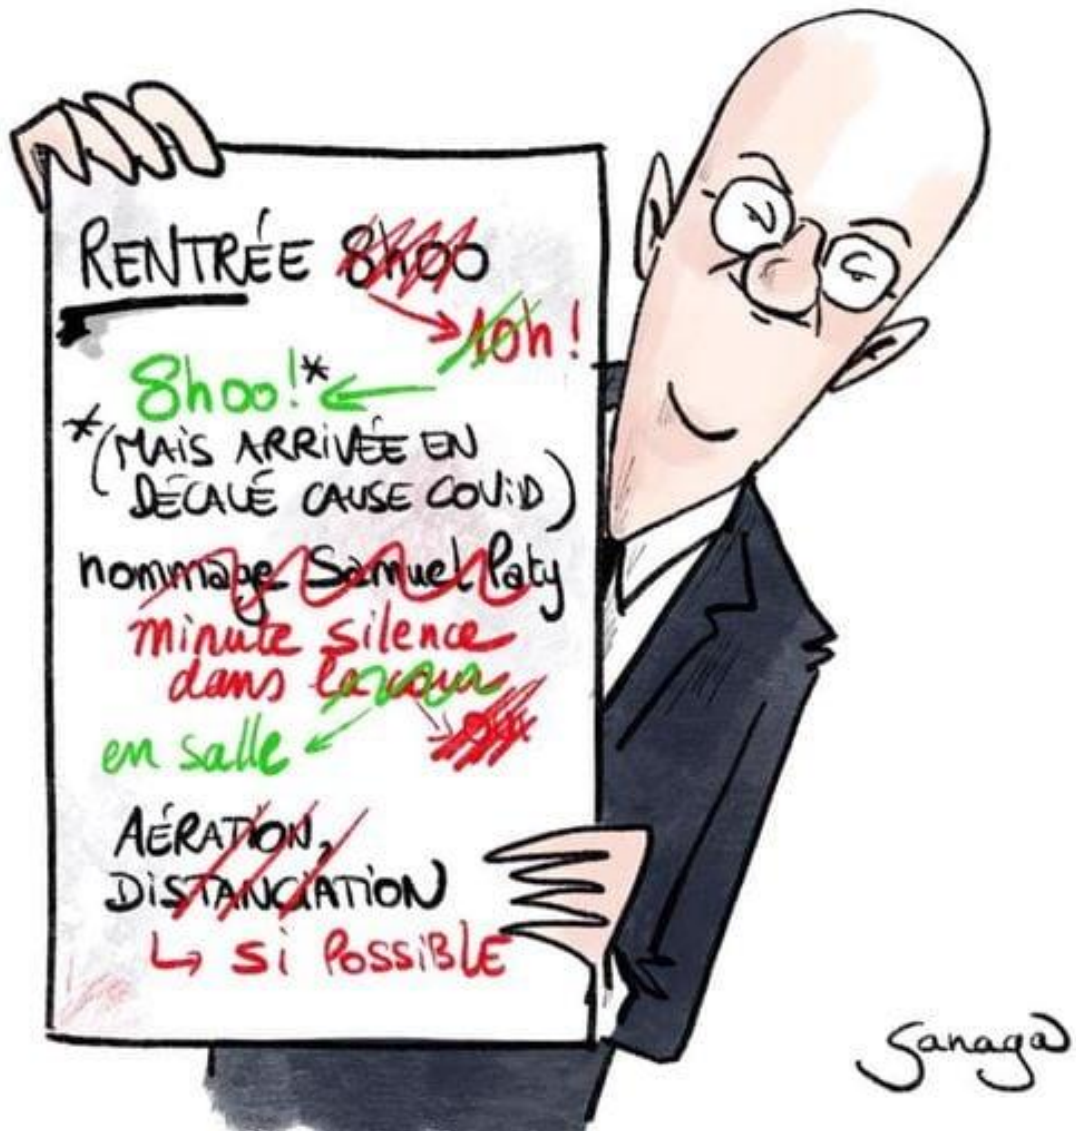 RENTRÉE 8h00
10h!
8h00!*
*(MAIS ARRIVÉE EN
DÉCALÉ CAUSE COVID)
hommage Samuel Paty
minute silence
dans la cour
en salle
AÉRATION,
DISTANCIATION
↳ si POSSIBLE
Sanaga